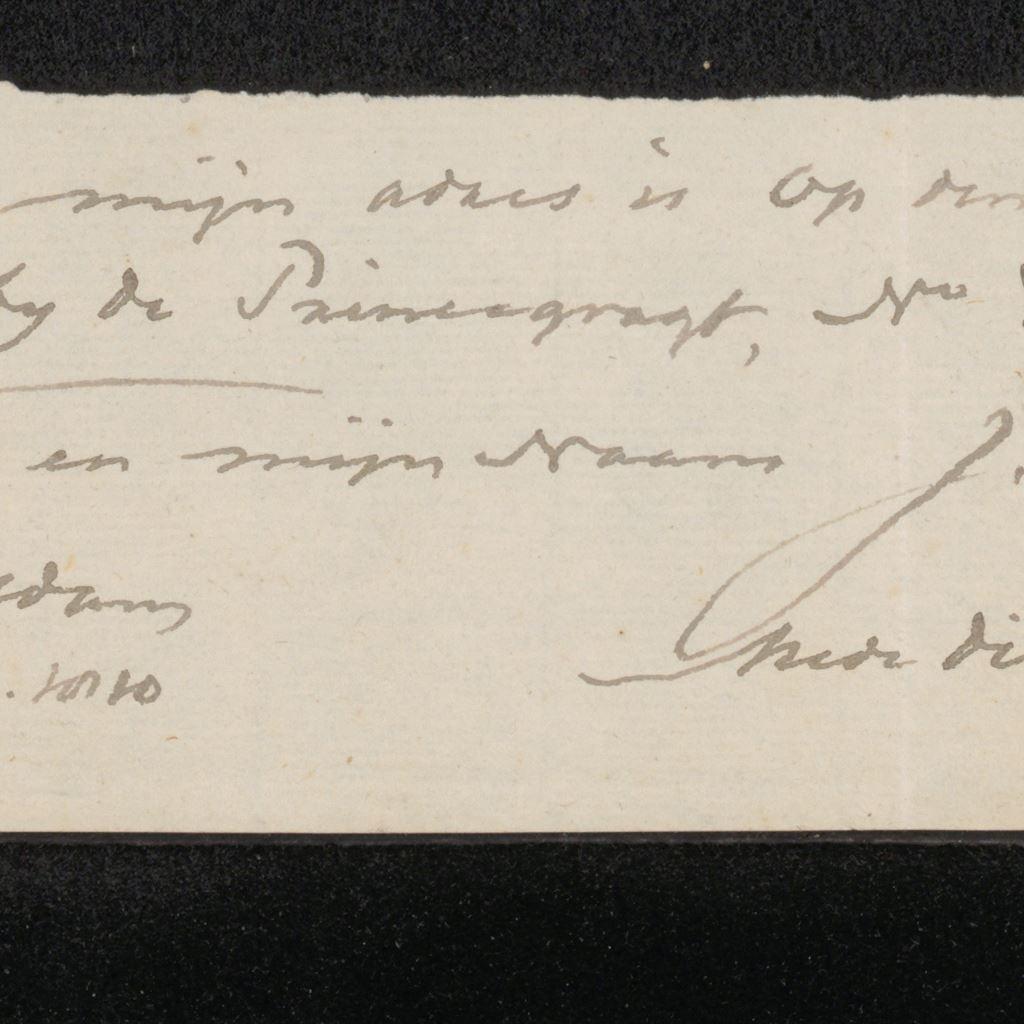 mijn adres is Op den
by de Princegragt, No
en mijn Naam J.
dam
1810
Mede di